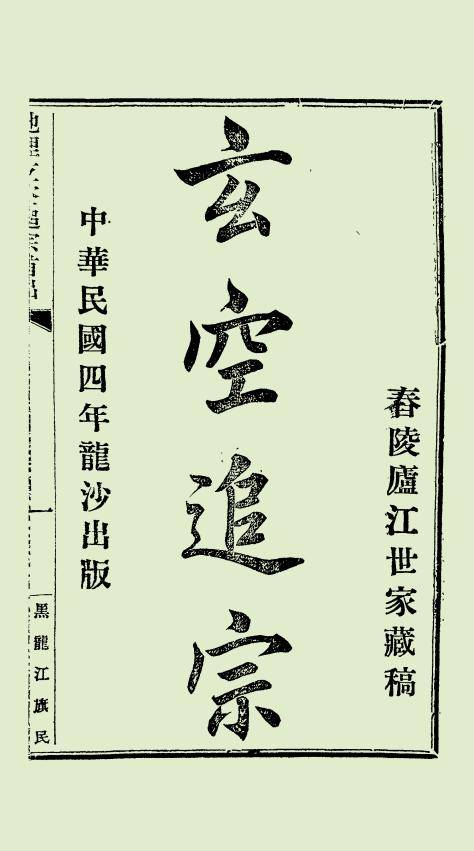 舂陵廬江世家藏稿
玄空追宗
中華民國四年龍沙出版
一
黑龍江旗民